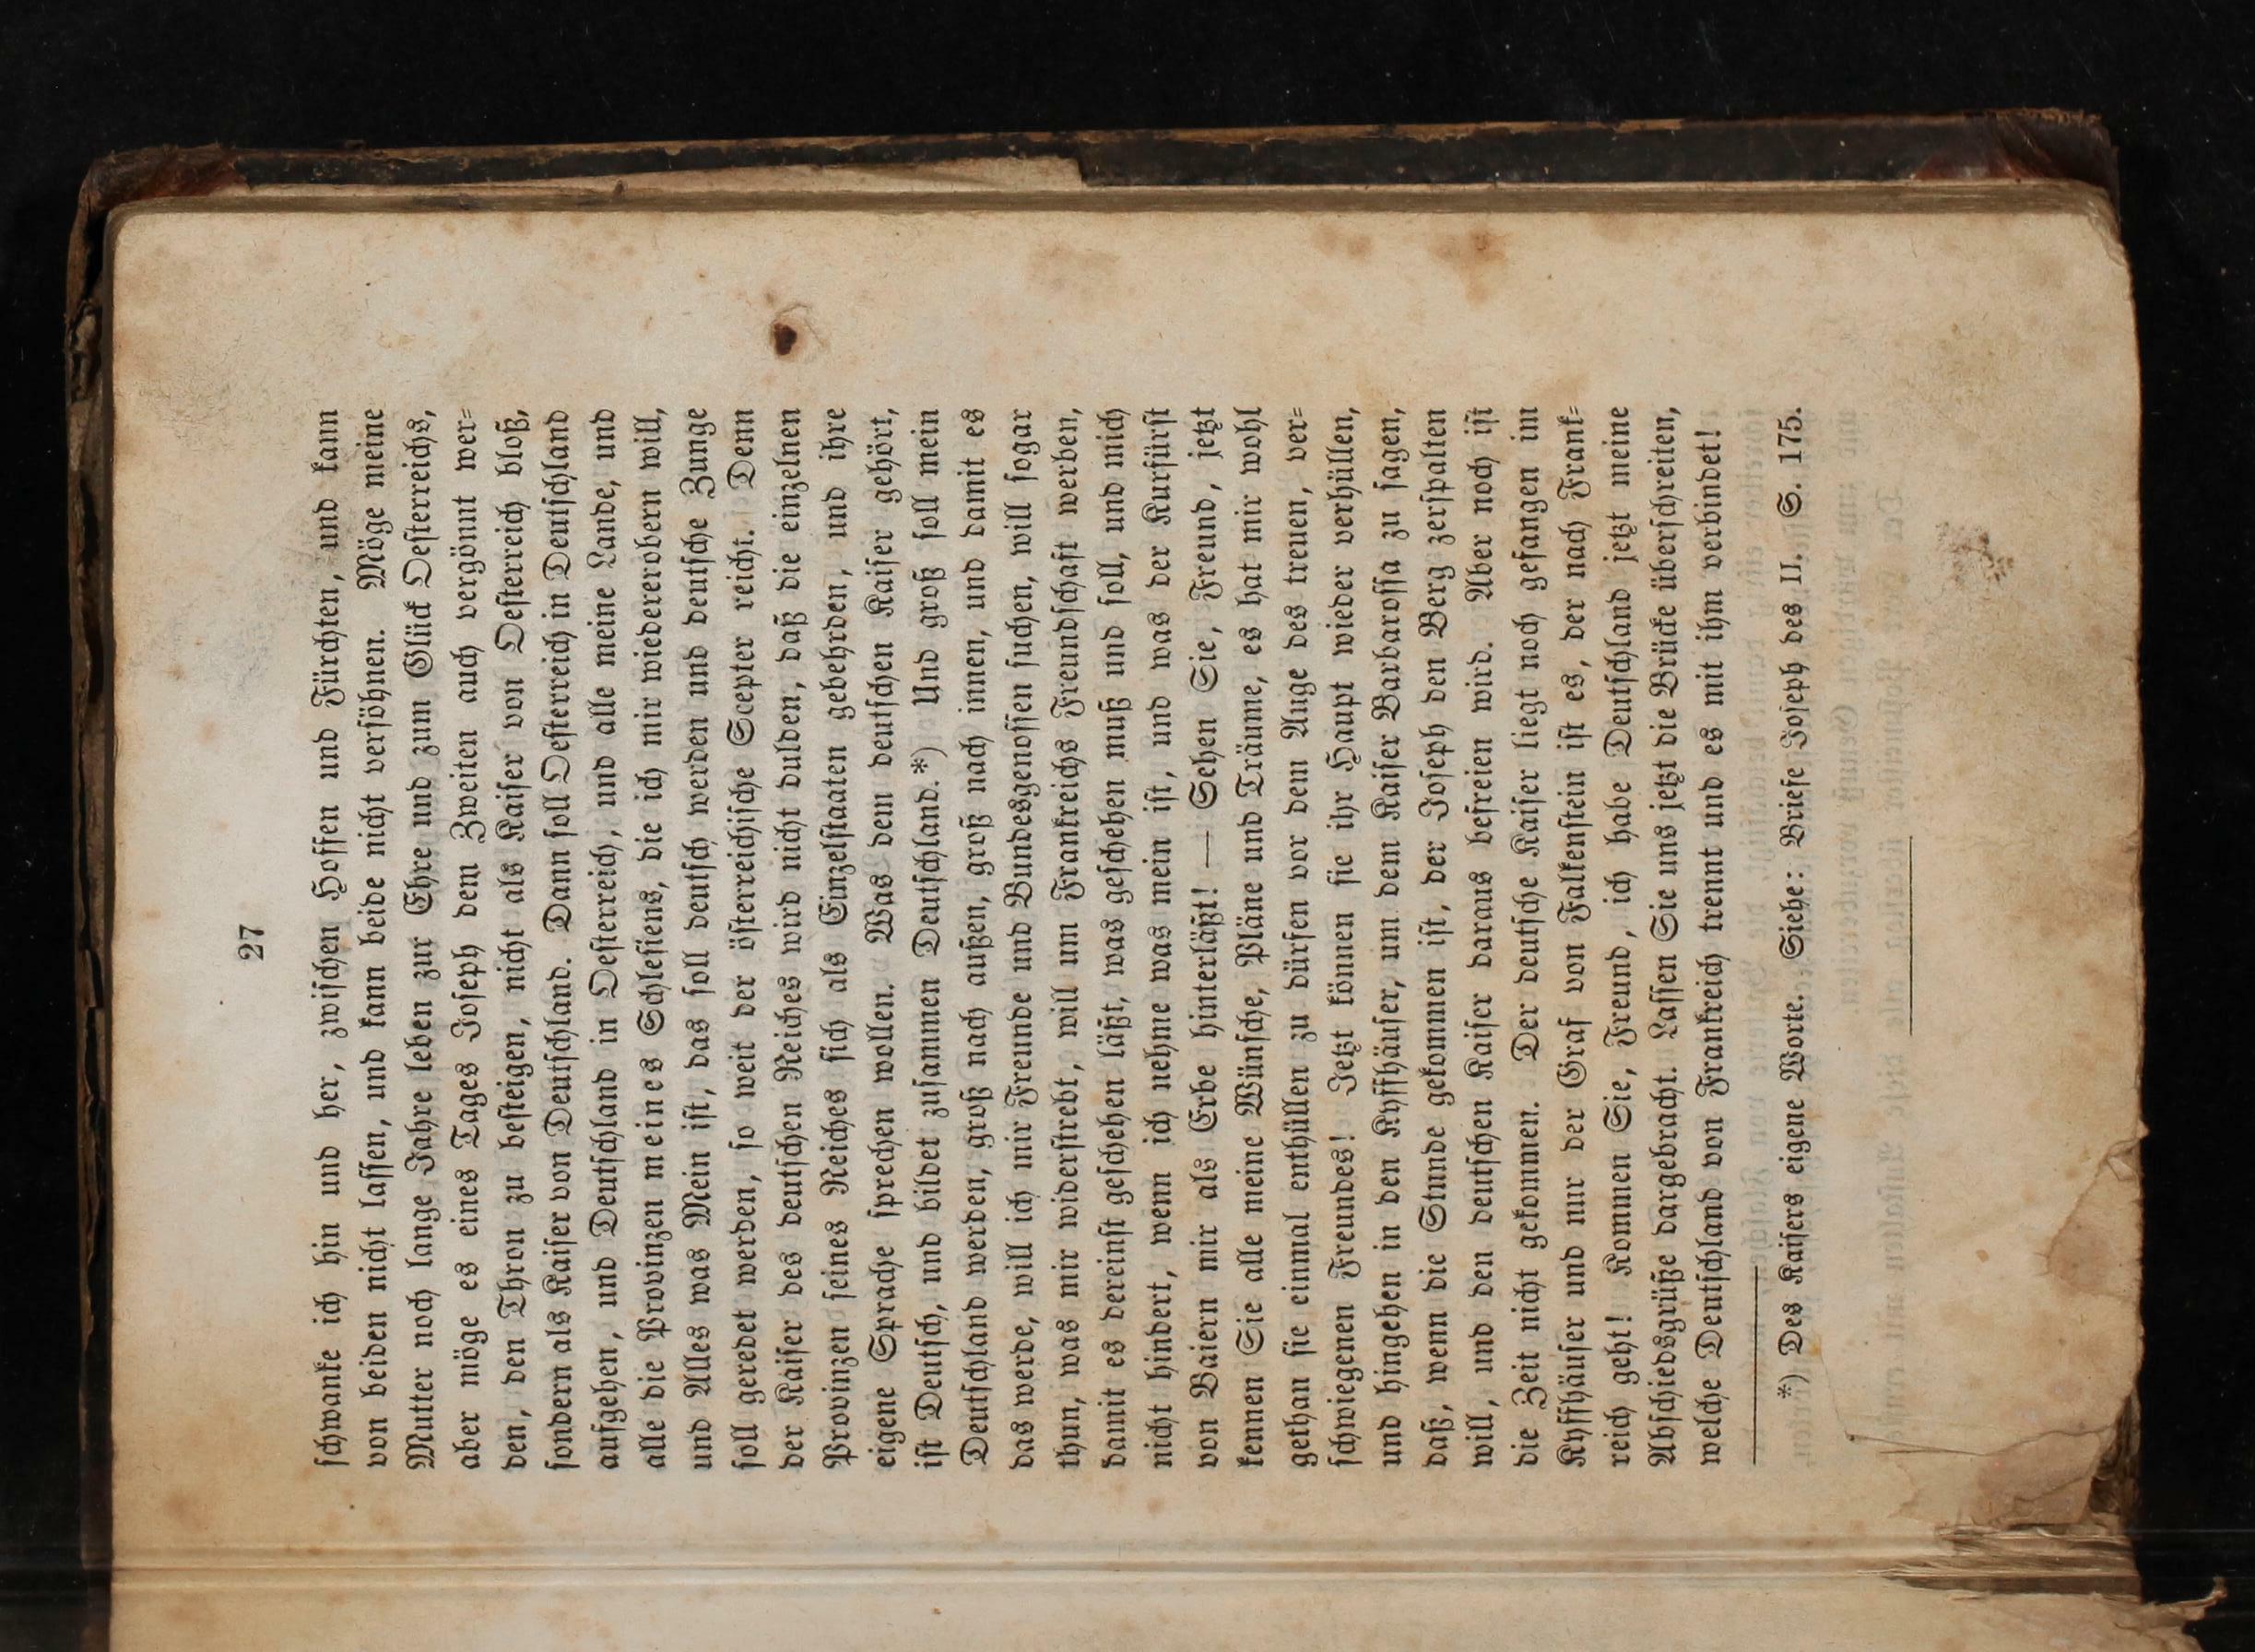 27
schwanke ich hin und her, zwischen Hoffen und Fürchten, und kann
von beiden nicht lassen, und kann beide nicht versöhnen. Möge meine
Mutter noch lange Jahre leben zur Ehre und zum Glück Oesterreichs,
aber möge es eines Tages Joseph dem Zweiten auch vergönnt wer=
den, den Thron zu besteigen, nicht als Kaiser von Oesterreich bloß,
sondern als Kaiser von Deutschland. Dann soll Oesterreich in Deutschland
aufgehen, und Deutschland in Oesterreich, und alle meine Lande, und
alle die Provinzen meines Schlesiens, die ich mir wiedererobern will,
und Alles was Mein ist, das soll deutsch werden und deutsche Zunge
soll geredet werden, so weit der österreichische Scepter reicht. Denn
der Kaiser des deutschen Reiches wird nicht dulden, daß die einzelnen
Provinzen seines Reiches sich als Einzelstaaten gebehrden, und ihre
eigene Sprache sprechen wollen. Was dem deutschen Kaiser gehört,
ist Deutsch, und bildet zusammen Deutschland.*) Und groß soll mein
Deutschland werden, groß nach außen, groß nach innen, und damit es
das werde, will ich mir Freunde und Bundesgenossen suchen, will sogar
thun, was mir widerstrebt, will um Frankreichs Freundschaft werben,
damit es dereinst geschehen läßt, was geschehen muß und soll, und mich
nicht hindert, wenn ich nehme was mein ist, und was der Kurfürst
von Baiern mir als Erbe hinterläßt! — Sehen Sie, Freund, jetzt
kennen Sie alle meine Wünsche, Pläne und Träume, es hat mir wohl
gethan sie einmal enthüllen zu dürfen vor dem Auge des treuen, ver=
schwiegenen Freundes! Jetzt können sie ihr Haupt wieder verhüllen,
und hingehen in den Kyffhäuser, um dem Kaiser Barbarossa zu sagen,
daß, wenn die Stunde gekommen ist, der Joseph den Berg zerspalten
will, und den deutschen Kaiser daraus befreien wird. Aber noch ist
die Zeit nicht gekommen. Der deutsche Kaiser liegt noch gefangen im
Kyffhäuser und nur der Graf von Falkenstein ist es, der nach Frank=
reich geht! Kommen Sie, Freund, ich habe Deutschland jetzt meine
Abschiedsgrüße dargebracht. Lassen Sie uns jetzt die Brücke überschreiten,
welche Deutschland von Frankreich trennt und es mit ihm verbindet!
*) Des Kaisers eigene Worte. Siehe: Briefe Joseph des II. S. 175.